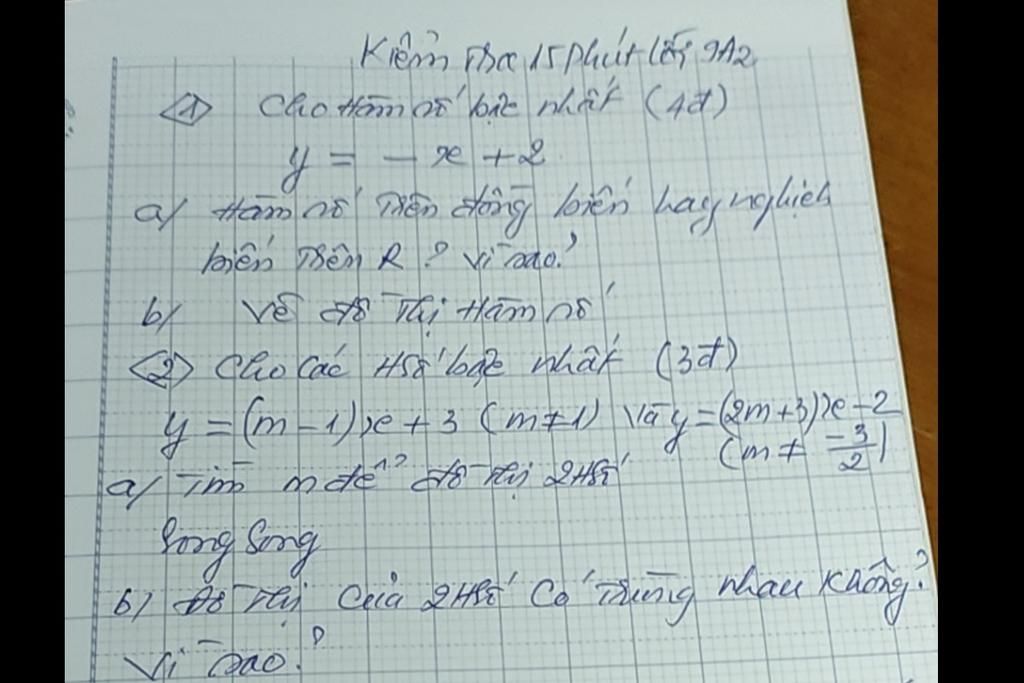 Kiểm tra 15 phút lớp 9A2
<1> Cho hàm số bậc nhất (4đ)
y = - x + 2
a/ Hàm số trên đồng biến hay nghịch
biến trên R? Vì sao?
b/ Vẽ đồ thị hàm số
<2> Cho các Hsố bậc nhất (3đ)
y = (m - 1)x + 3 (m ≠ 1) và y = (2m+3)x - 2
(m ≠ -3/2)
a/ Tìm m để đồ thị 2 Hsố
Song Song
b/ Đồ thị của 2 Hsố có trùng nhau không?
Vì sao?